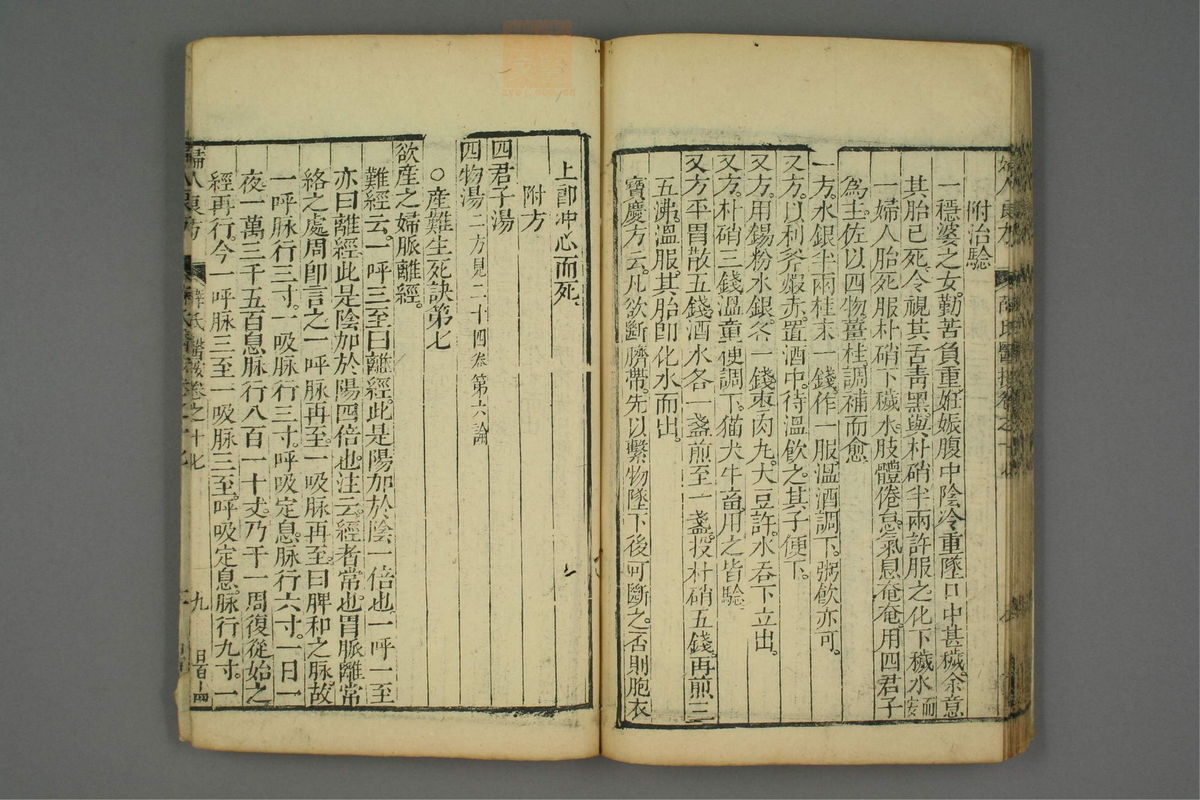 附治驗
一穩婆之女勤苦負重妊娠腹中陰冷重墜口中甚穢余意
其胎已死令視其舌青黑與朴硝半兩許服之化下穢水而安
一婦人胎死服朴硝下穢水肢體倦怠氣息奄奄用四君子
為主佐以四物薑桂調補而愈
一方水銀半兩桂末一錢作一服溫酒調下粥飲亦可
又方以利斧煅赤置酒中待溫飲之其子便下
又方用錫粉水銀各一錢棗肉丸大豆許水吞下立出
又方朴硝三錢溫童便調下猫犬牛畜用之皆驗
又方平胃散五錢酒水各一盞煎至一盞投朴硝五錢再煎三
五沸溫服其胎卽化水而出
寶慶方云凡欲斷臍帶先以繫物墜下後可斷之否則胞衣
上卽冲心而死
附方
四君子湯
四物湯二方見二十四卷第六論
○產難生死訣第七
欲產之婦脈離經
難經云一呼三至曰離經此是陽加於陰一倍也一呼一至
亦曰離經此是陰加於陽四倍也注云經者常也胃脈離常
絡之處周卽言之一呼脈再至一吸脈再至曰脾和之脈故
一呼脈行三寸一吸脈行三寸呼吸定息脈行六寸一日一
夜一萬三千五百息脈行八百一十丈乃干一周復從始之
經再行今一呼脈三至一吸脈三至呼吸定息脈行九寸一
婦人良方
薛氏醫按卷之十七
九